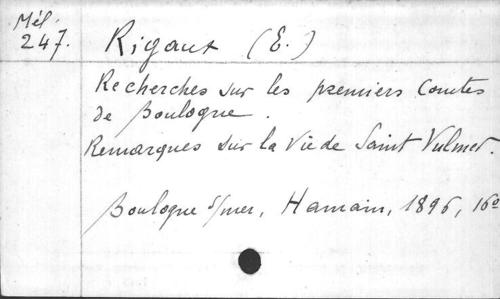 Mél.
247.
Rigaux (E.)
Recherches sur les premiers Comtes
de Boulogne.
Remarques sur la Vie de Saint Vulmer.
Boulogne s/mer, Hamain, 1896, 16º